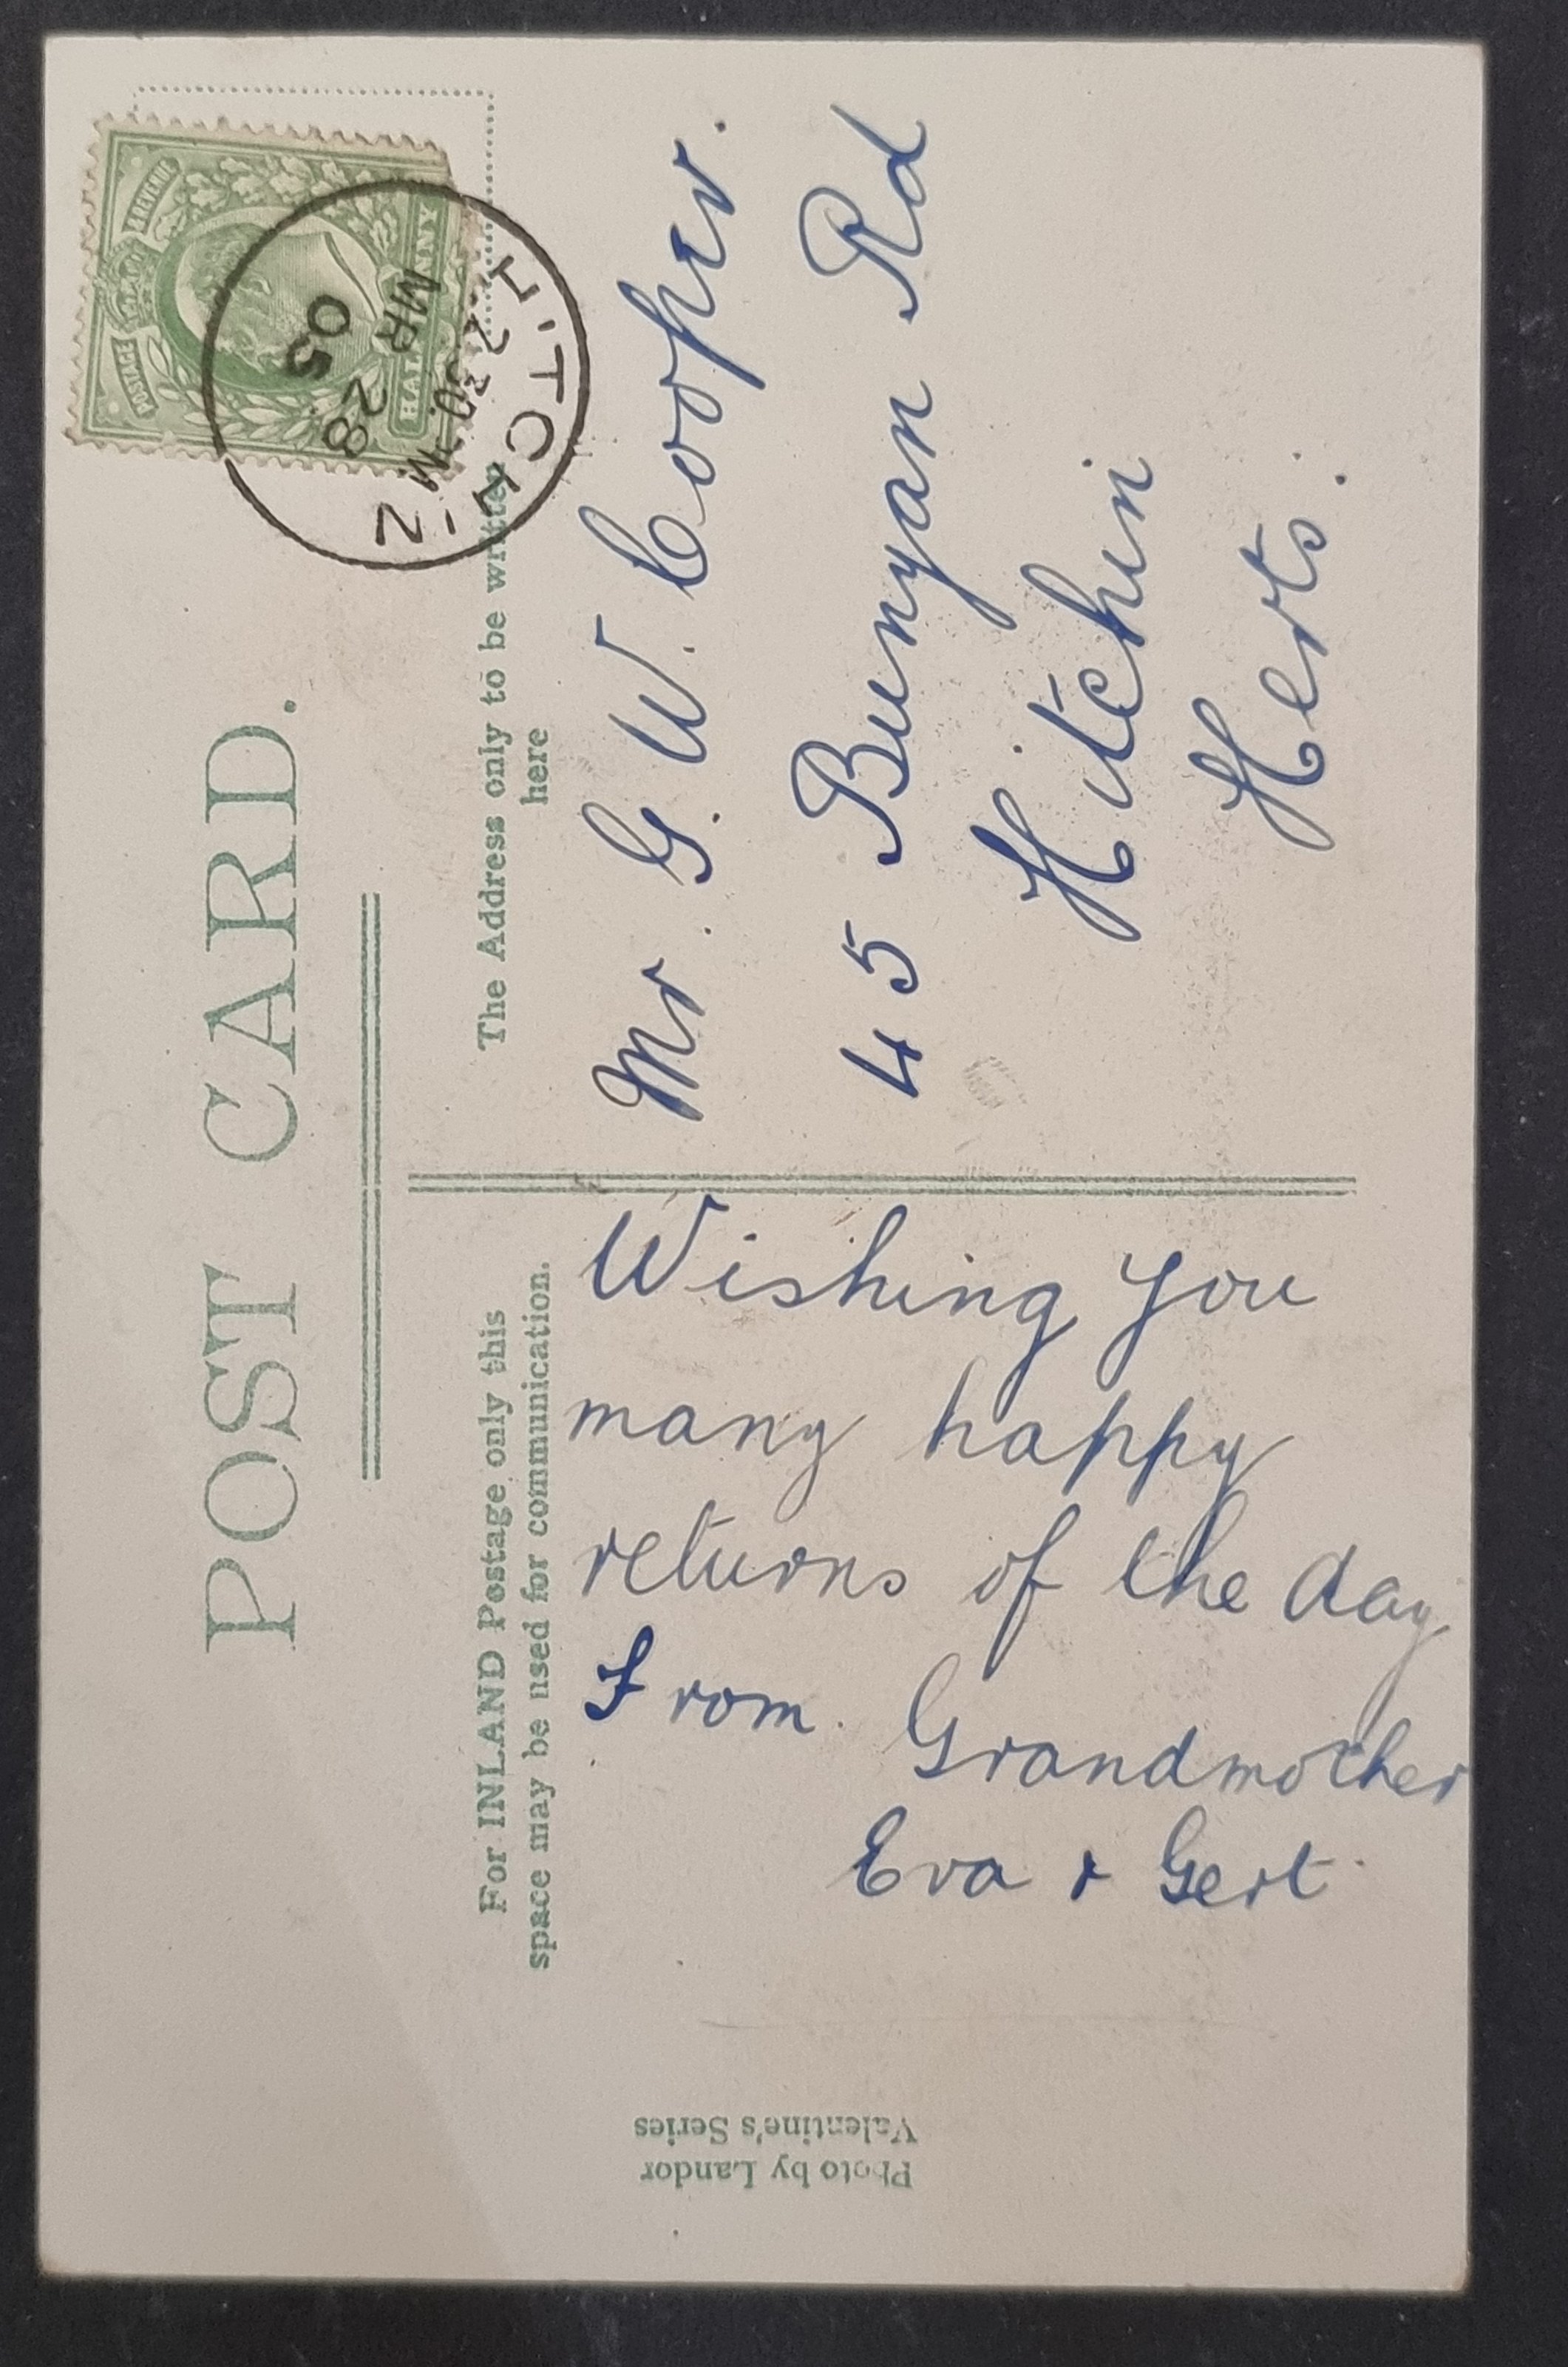 POST CARD.
POSTAGE & REVENUE
HALFPENNY
HITCHIN
MR 28
05
For INLAND Postage only this
space may be used for communication.
The Address only to be written
here
Wishing you
many happy
returns of the day
From. Grandmother
Eva & Gert.
Mr. G. W. Cooper.
45 Bunyan Rd
Hitchin
Herts.
Photo by Landor
Valentine's Series